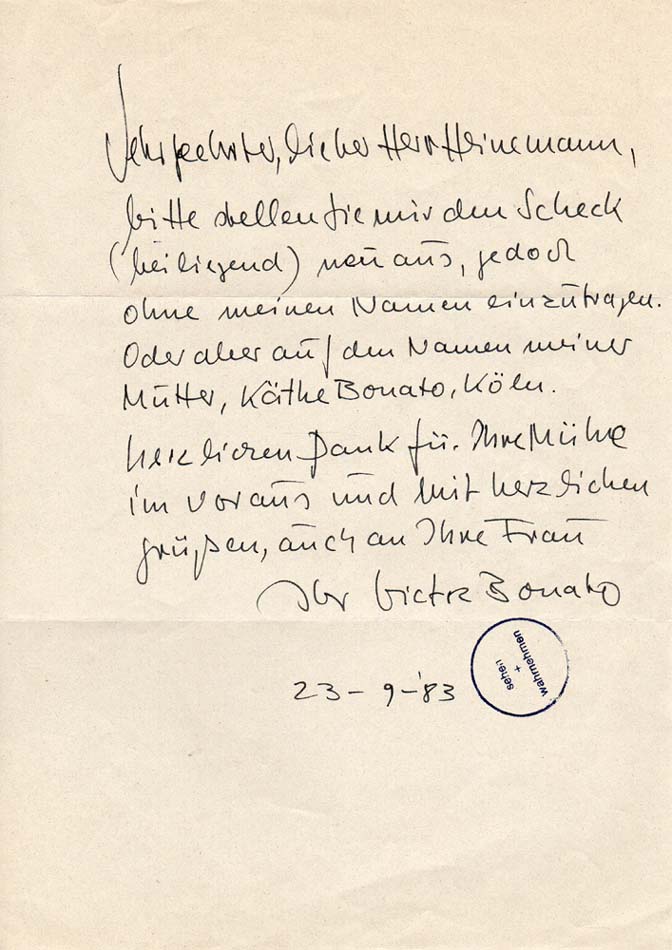 Sehr geehrter, lieber Herr Heinemann,
bitte stellen Sie mir den Scheck
(beiliegend) neu aus, jedoch
ohne meinen Namen einzutragen.
Oder aber auf den Namen meiner
Mutter, Käthe Bonato, Köln.
Herzlichen Dank für Ihre Mühe
im voraus und mit herzlichen
Grüßen, auch an Ihre Frau
Ihr Victor Bonato
23-9-'83
sehen
+
wahrnehmen